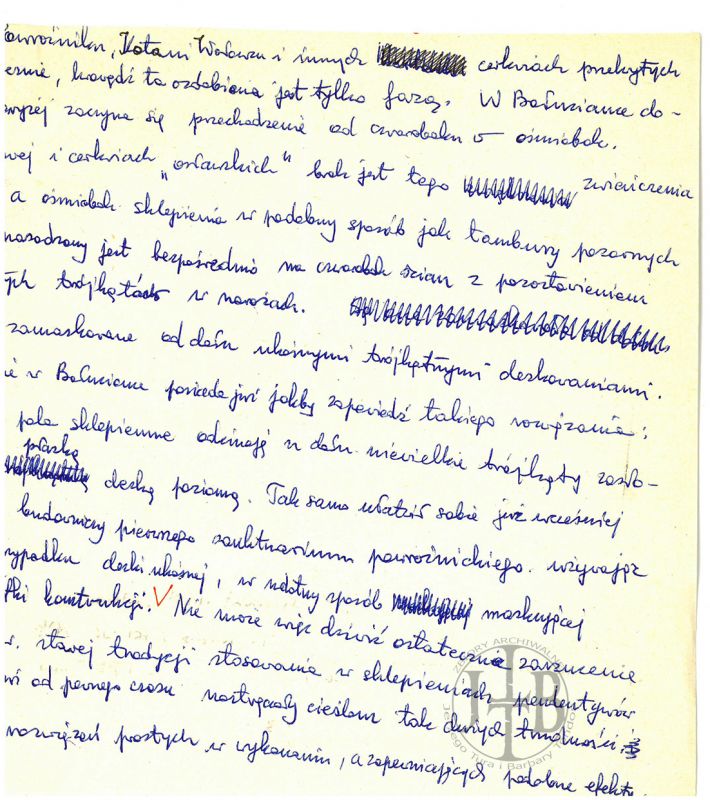 Powroźniku, Kotani Wołowcu i innych cerkwiach przekrytych
krawędź ta ozdobiona jest tylko fazą. W Bałuciance do-
wyżej zaczyna się przechodzenie od czworoboku w ośmiobok.
wej i cerkwiach "osławskich" brak jest tego zwieńczenia
a ośmiobok sklepienia w podobny sposób jak tambury pozornych
nasadzony jest bezpośrednio na czworobok ścian z pozostawieniem
ych trójkątów w narożach.
zamaskowane od dołu ukośnymi trójkątnymi deskowaniami.
w Bałuciance posiada już jakby zapowiedź takiego rozwiązania:
pola sklepienne odcinają u dołu niewielkie trójkąty zasło-
płaską
deską poziomą. Tak samo ułatwił sobie już wcześniej
budowniczy pierwszego sanktuarium powroźnickiego używając
wypadku deski ukośnej, w istotny sposób maskującej
konstrukcji. Nie może więc dziwić ostatecznie zarzucenie
starej tradycji stosowania w sklepieniach pendentywów
od pewnego czasu nastręczały cieślom tak dużych trudności.
rozwiązań prostych w wykonaniu, a zapewniających podobne efekty.
ZBIORY ARCHIWALNE
Jerzego Tura i Barbary Tondos
ITB